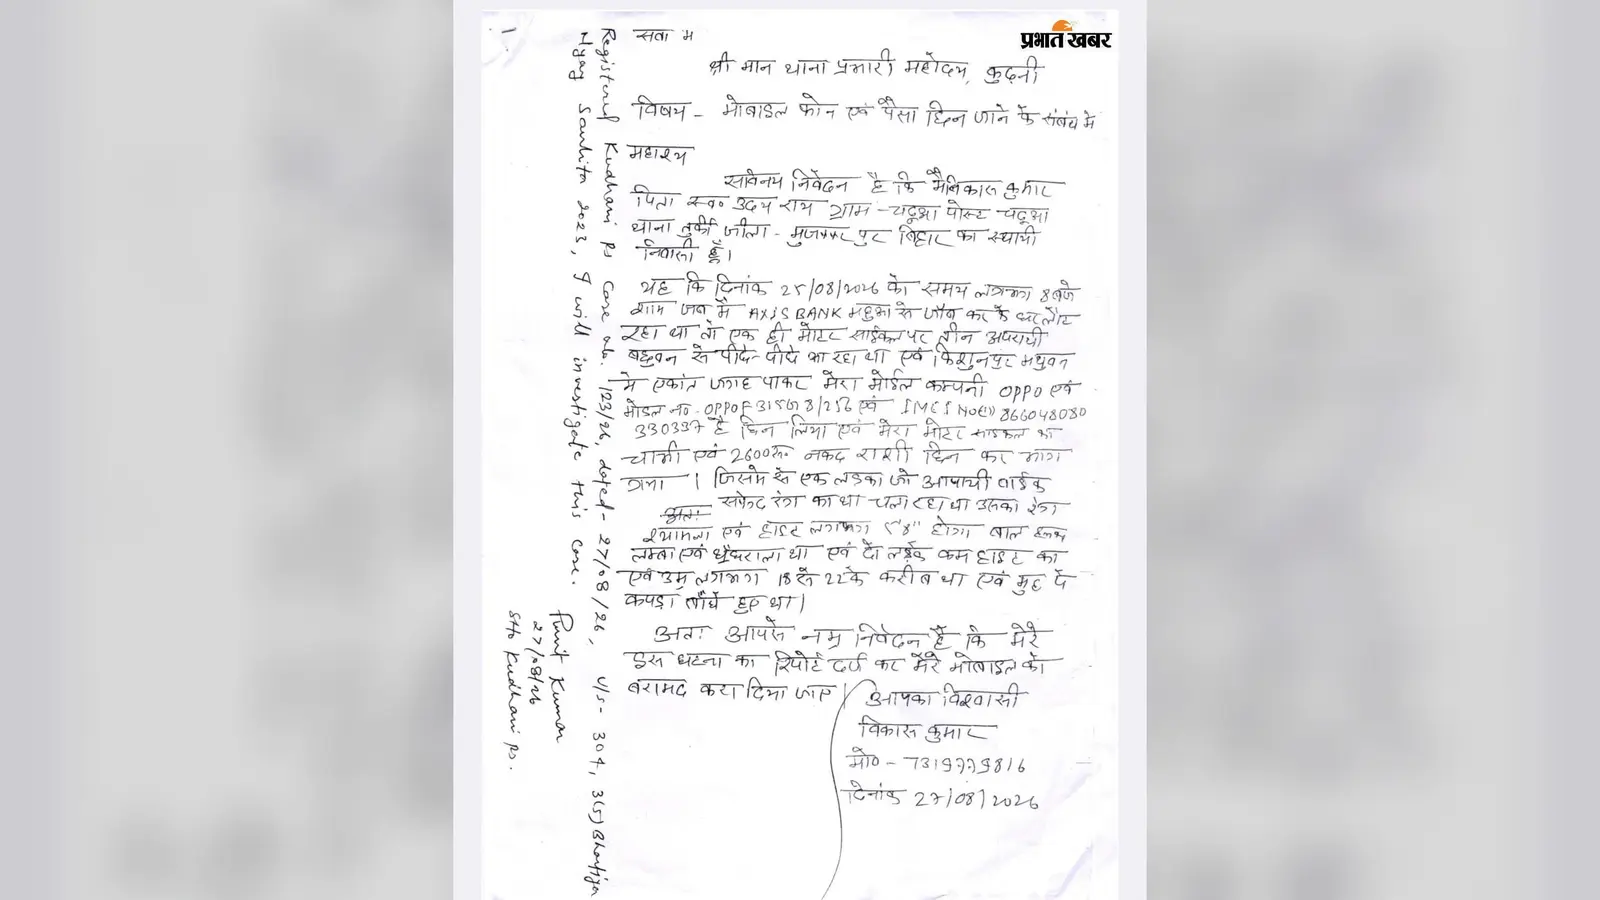 प्रभात खबर
सेवा में
श्री मान थाना प्रभारी महोदय, कुढ़नी
विषय - मोबाइल फोन एवं पैसा छिन जाने के संबंध में
महाशय
सविनय निवेदन है कि मैं विकास कुमार
पिता स्व० उदय राय ग्राम - चढुआ पोस्ट - चढुआ
थाना तुर्की जीला - मुजफ्फरपुर बिहार का स्थायी
निवासी हूँ।
यह कि दिनांक 25/08/2026 को समय लगभग 8 बजे
शाम जब मैं AXIS BANK महुआ से जौब करके घर लौट
रहा था तो एक ही मोटर साईकल पर तीन अपराधी
से पीछे-पीछे आ रहा था एवं किशुनपुर मधुवन
मे एकांत जगह पाकर मेरा मोबईल कम्पनी OPPO एवं
मोडल no - OPPO F31 5G 8/256 एवं 866048080
330337 है छिन लिया एवं मेरा मोटर साइकल का
चाभी एवं 2600रु० नकद राशी छिन कर भाग
गया। जिसमे से एक लड़का जो आपाची बाईक
सफेद रंग का था चला रहा था उसका रंग
अतः
श्यामला एवं हाइट लगभग 5'8" होगा बाल
लम्बा एवं घुंघराला था एवं दो लड़के कम हाइट का
एवं उम्र लगभग 18 से 22 के करीब था एवं मुह पे
कपड़ा बाँधे हुए था।
अतः आपसे नम्र निवेदन है कि मेरे
इस घटना का रिपोर्ट दर्ज कर मेरे मोबाइल को
बरामद करा दिया जाए।
आपका विश्वासी
विकास कुमार
मो० - 7319779816
दिनांक 27/08/2026
Registered Kudhani PS Case no. 123/26, dated - 27/08/26, u/s - 304, 3(5) Bhartiya
Nyay Sanhita 2023, I will investigate this case.
Punit Kumar
27/08/26
SHO Kudhani PS.